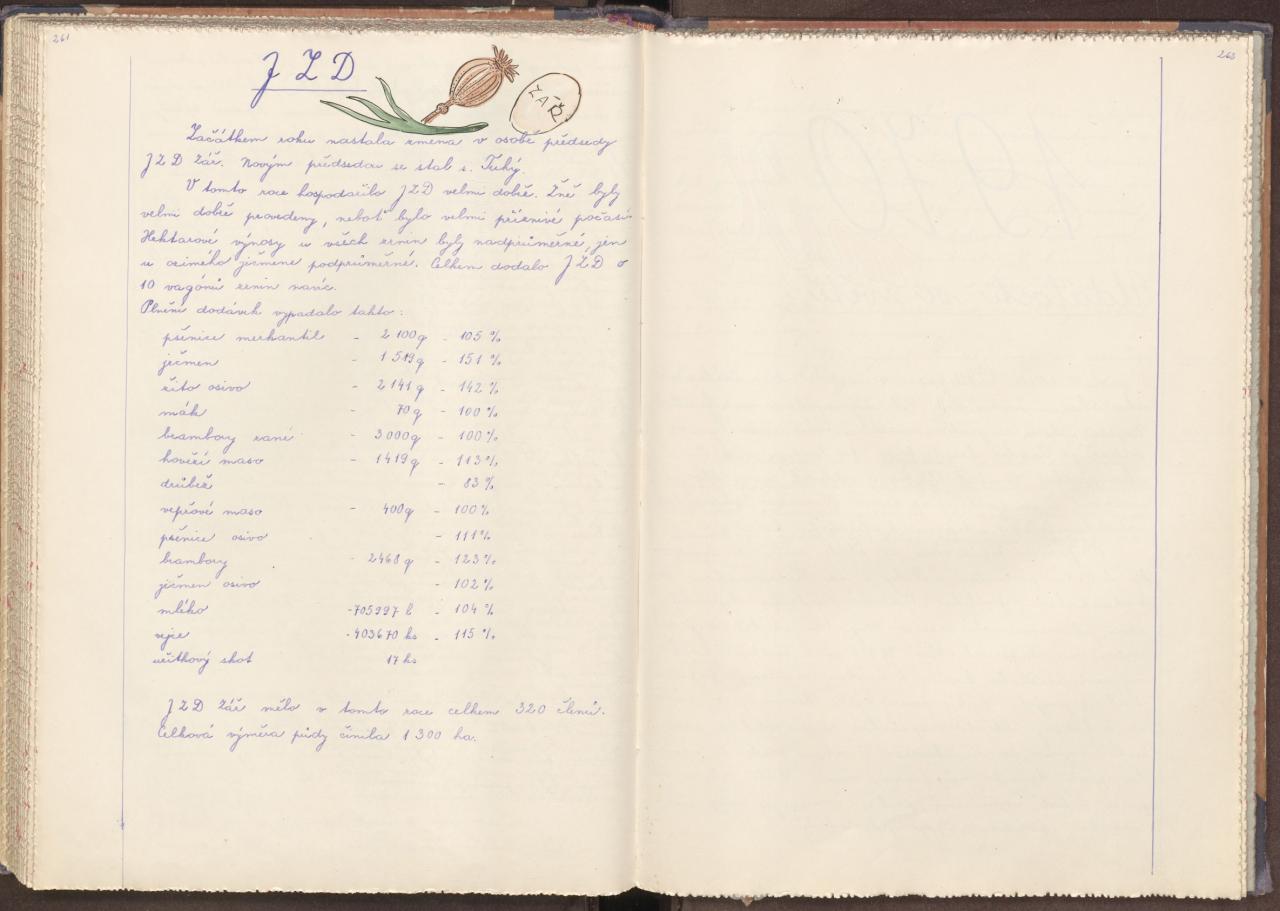 261
JZD
ZÁŘ
Začátkem roku nastala změna v osobě předsedy
JZD Zář. Novým předsedou se stal s. Tichý.
V tomto roce hospodařilo JZD velmi dobře. Žně byly
velmi dobře provedeny, neboť bylo velmi příznivé počasí.
Hektarové výnosy u všech zrnin byly nadprůměrné, jen
u ozimého ječmene podprůměrné. Celkem dodalo JZD o
10 vagónů zrnin navíc.
Plnění dodávek vypadalo takto:
pšenice merkantil - 2 100 q - 105 %
ječmen - 1 519 q - 151 %
žito osivo - 2 141 q - 142 %
mák - 70 q - 100 %
brambory rané - 3 000 q - 100 %
hovězí maso - 1 419 q - 113 %
drůbež - 83 %
vepřové maso - 400 q - 100 %
pšenice osivo - 111 %
brambory - 2468 q - 123 %
ječmen osivo - 102 %
mléko - 705997 l - 104 %
vejce - 403670 ks - 115 %
užitkový skot 17 ks
JZD Zář mělo v tomto roce celkem 320 členů.
Celková výměra půdy činila 1 300 ha.
263